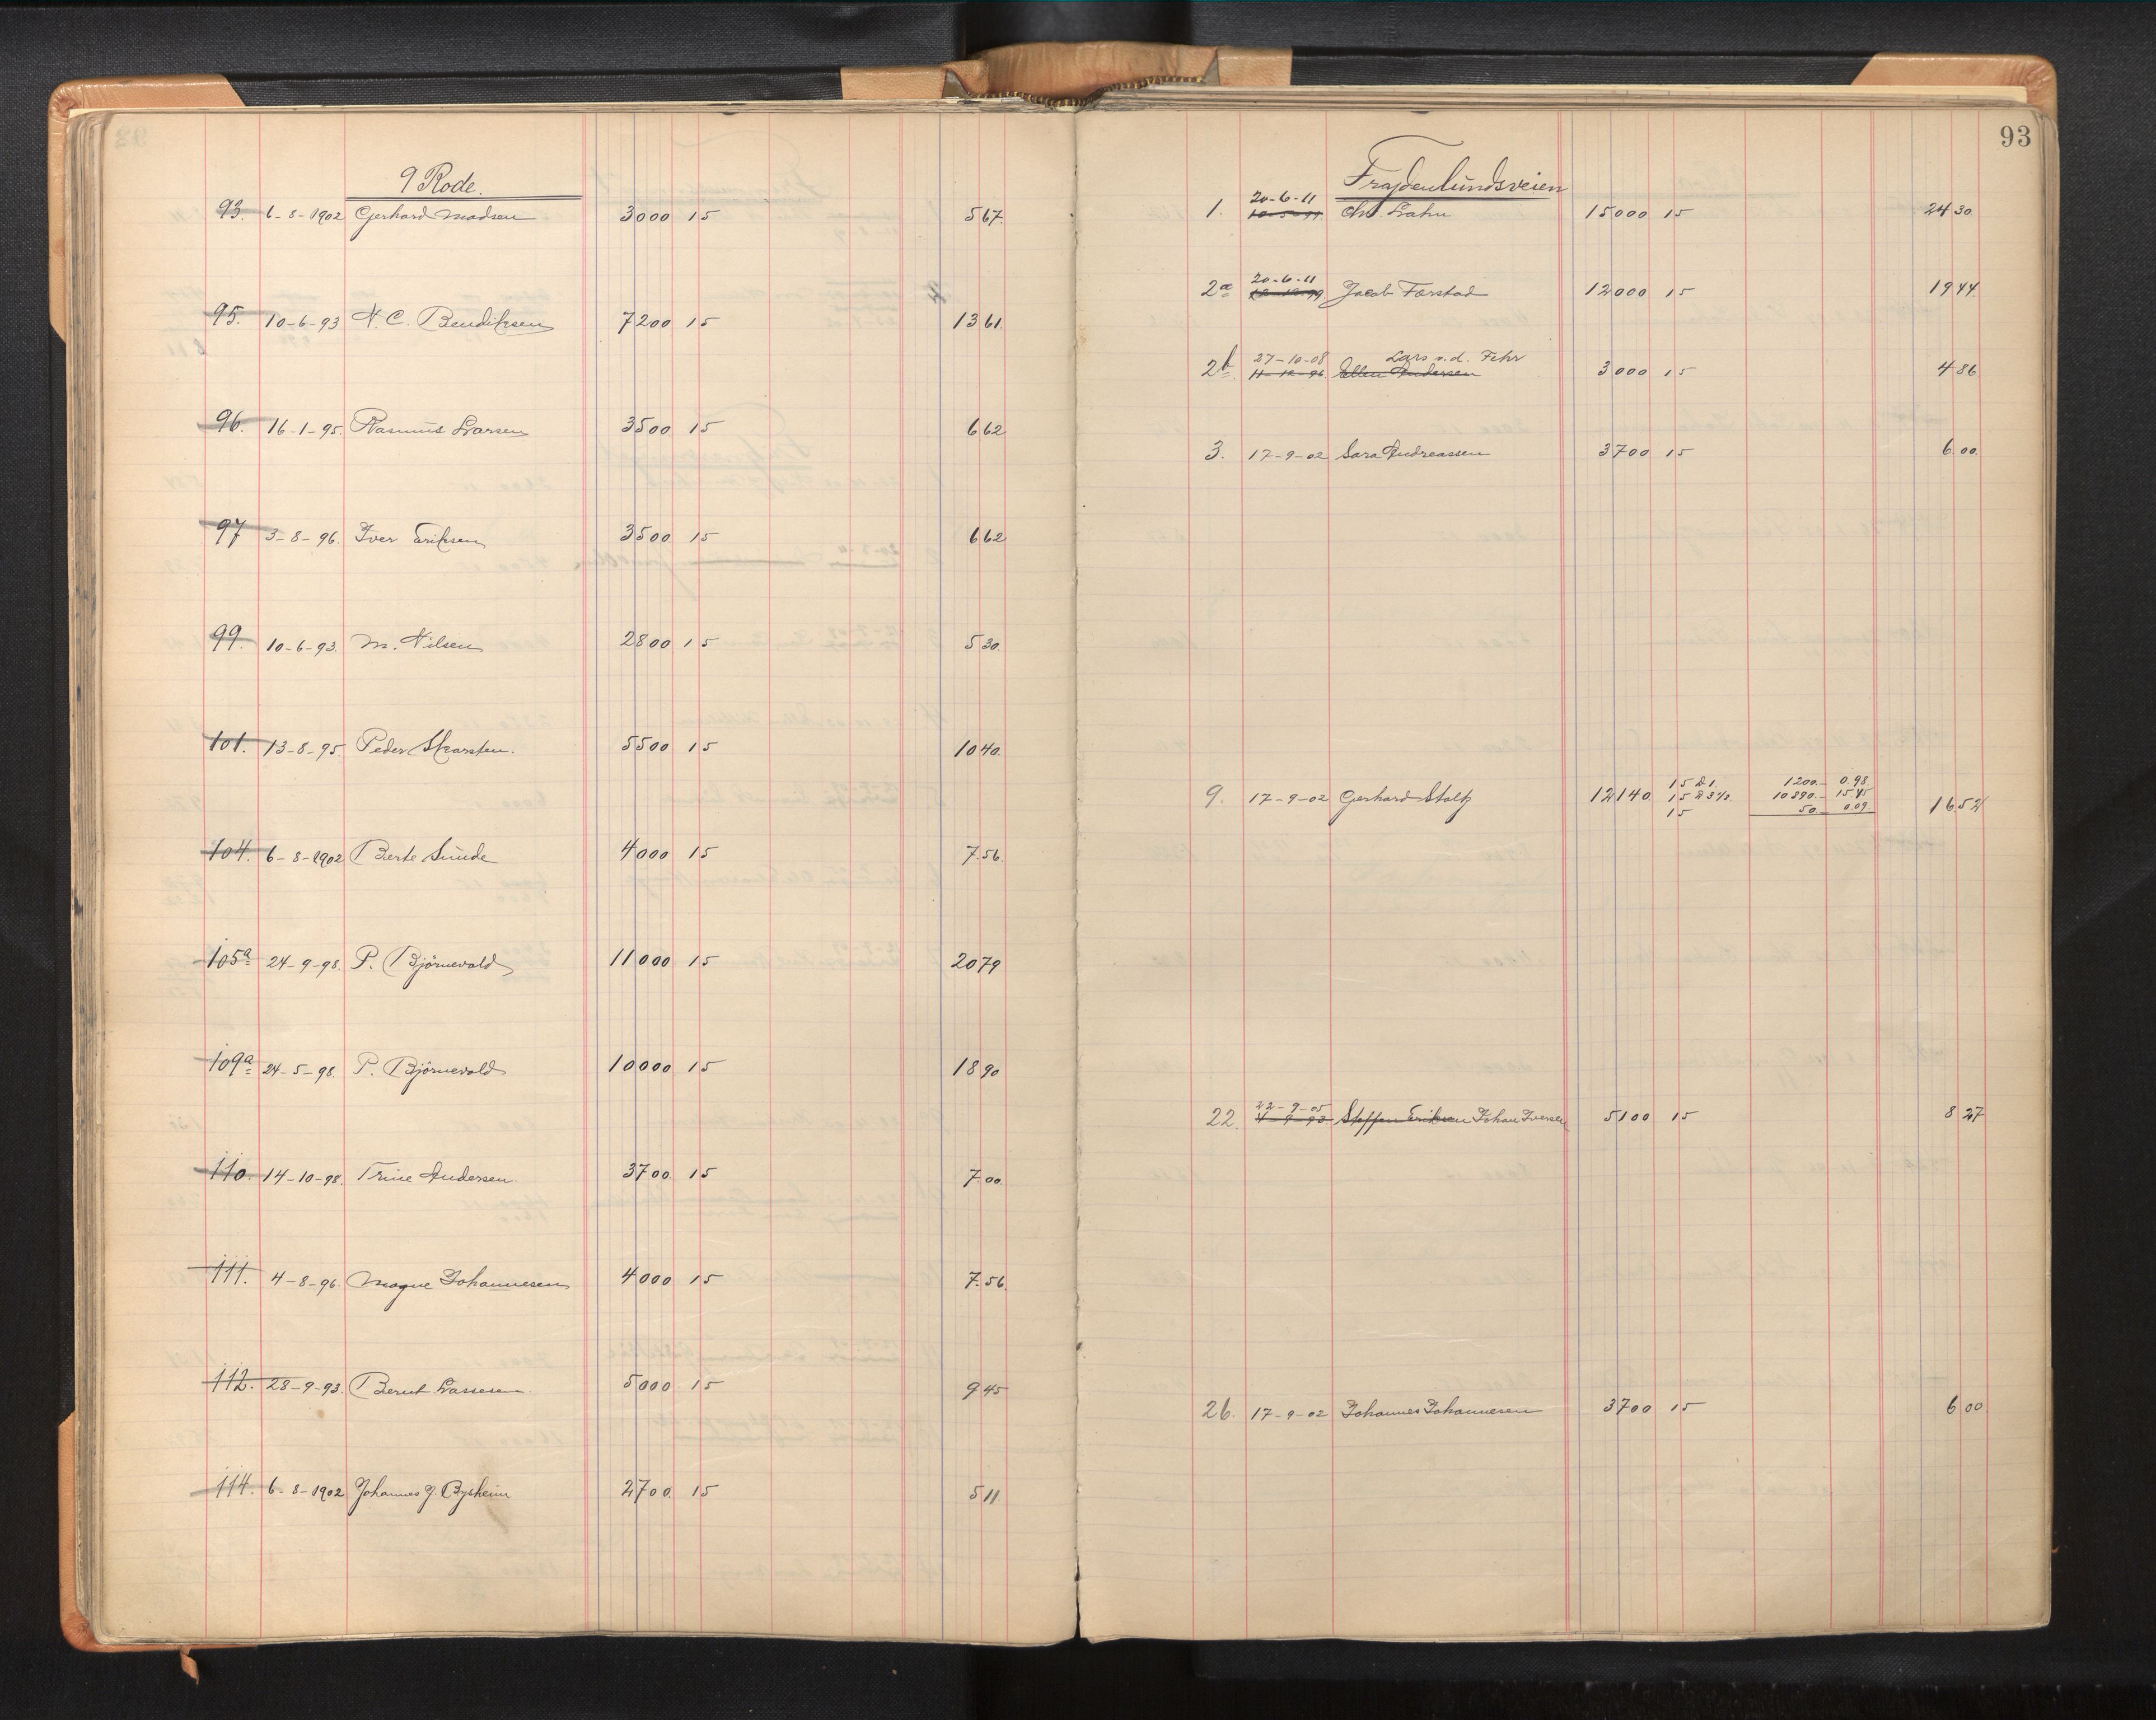 9 Rode.
93. 6-8-1902 Gerhard Madsen 3000 15 5 67.
95. 10-6-93 N. C. Bendiksen 7200 15 13 61.
96. 16-1-95. Rasmus Larsen 3500 15 6 62
97 3-8-96. Iver Eriksen 3500 15 6 62
99. 10-6-93. M. Nilsen 2800 15 5 30.
101. 13-8-95. Peder Skarsten. 5500 15 10 40.
104. 6-8-1902 Berte Sunde 4000 15 7.56.
105a 24-9-98. P. Bjørnevold 11000 15 20 79
109a 24-5-98. P. Bjørnevold 10000 15 18 90
110. 14-10-98. Trine Andersen. 3700 15 7.00.
111. 4-8-96. Mogne Johannesen 4000 15 7.56.
112. 28-9-93. Bernt Lassesen 5000 15 9 45
114. 6-8-1902 Johannes J. Bysheim 2700. 15 5 11.
93
Frydenlundsveien
20-6-11
1. Chr. Lahn 15000 15 24 30.
20-6-11
2a Jacob Forstad 12000 15 19 44.
27-10-08 Lars v.d. Fehr
2b 11-12-96 Ellen Andersen 3000 15 4 86
3. 17-9-02 Sara Andreassen 3700 15 6.00.
15 D 1. 1200.- 0.98.
9. 17-9-02 Gerhard Stoltz 12140. 15 D 3/0. 10890.- 15.45 16 52
15 50.- 0.09.
22-9-05
22. 4-9-93. Steffen Eriksen Johan Iversen 5100 15 8 27
26. 17-9-02 Johannes Johannesen 3700 15 6 00